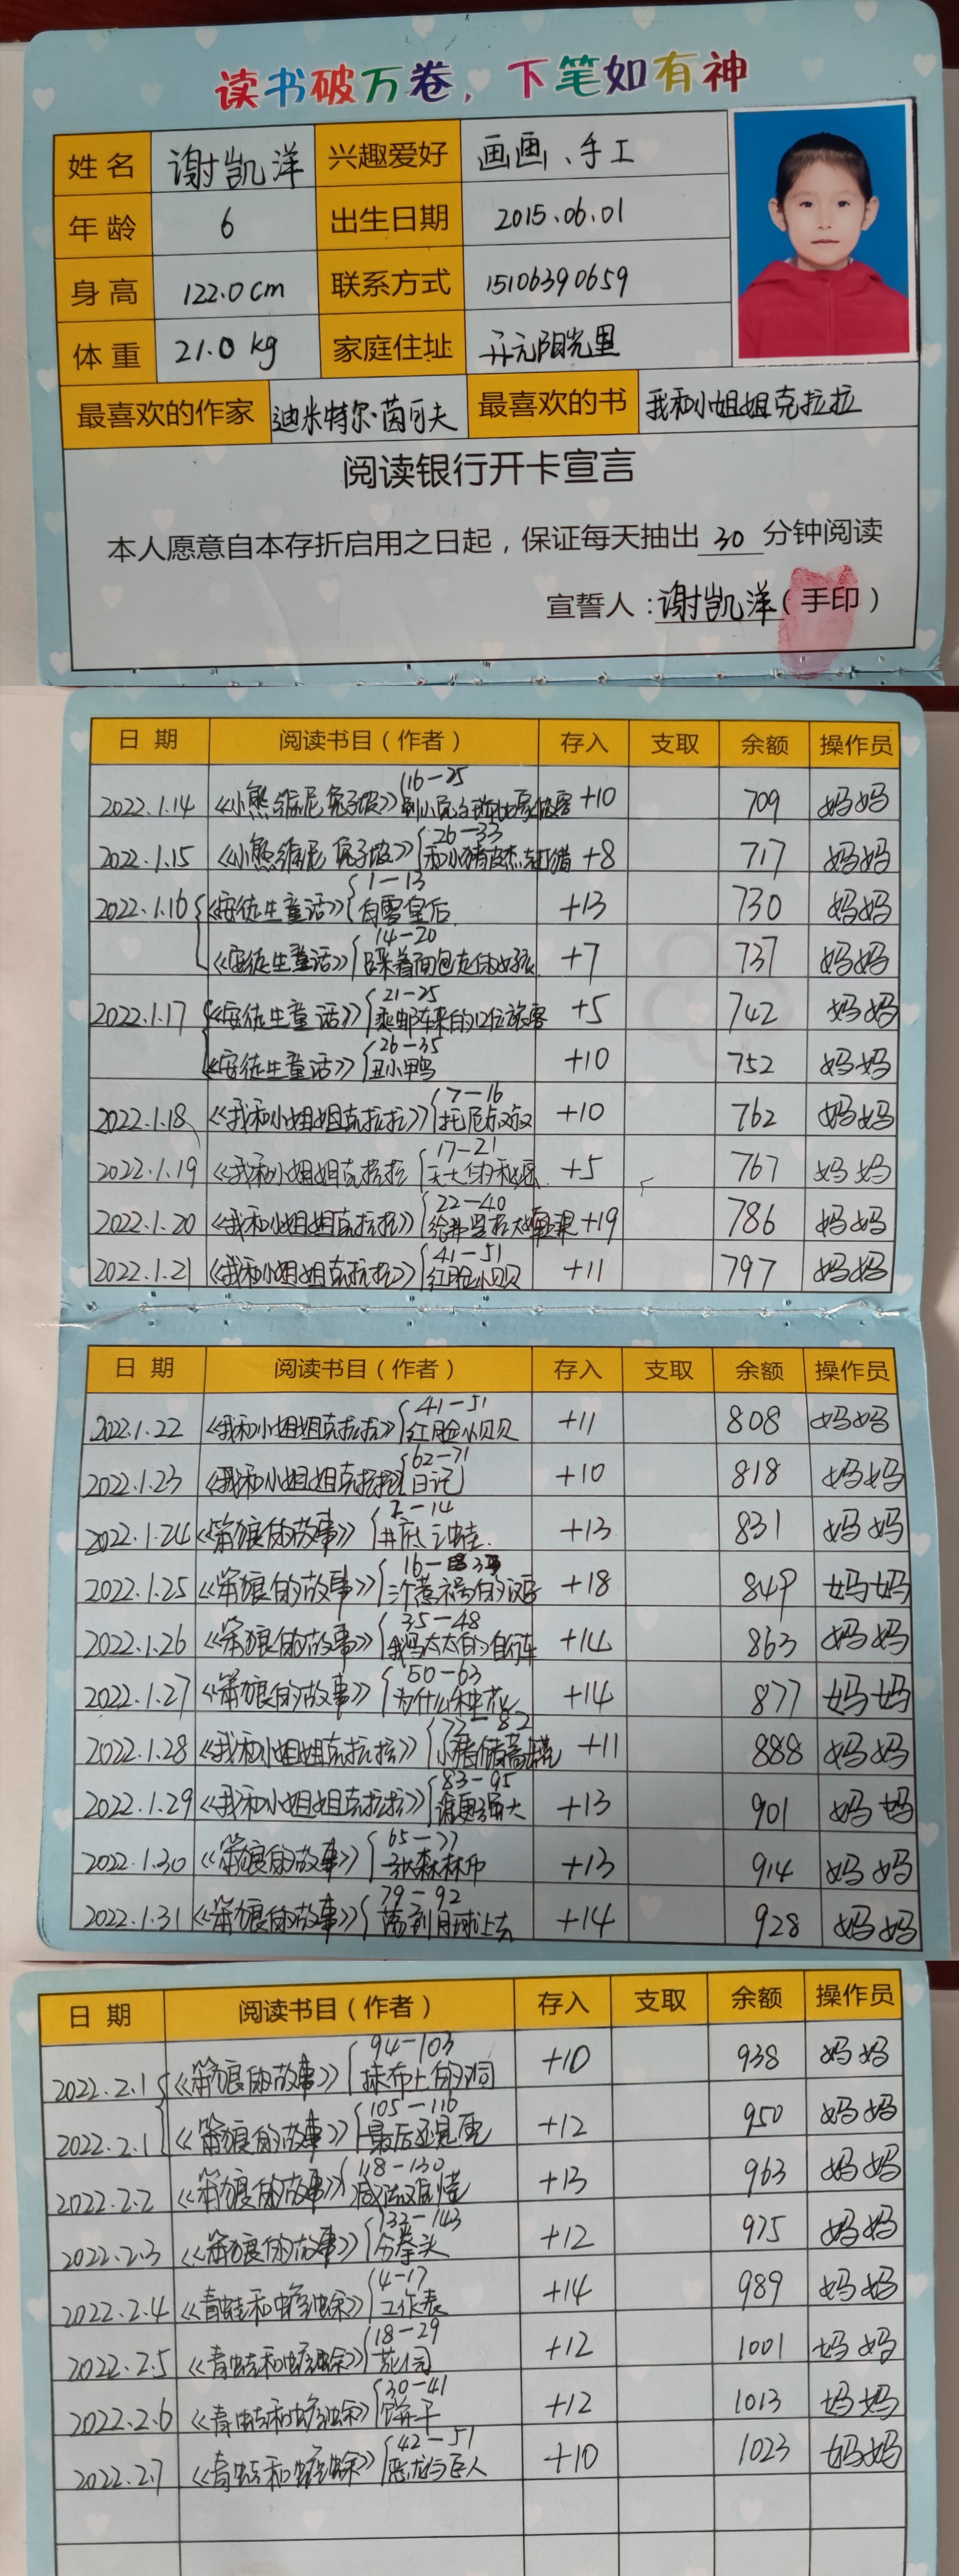 读书破万卷，下笔如有神
姓名 谢凯洋 兴趣爱好 画画、手工
年龄 6 出生日期 2015.06.01
身高 122.0cm 联系方式 15106390659
体重 21.0 kg 家庭住址 开元阳光里
最喜欢的作家 迪米特尔·茵可夫 最喜欢的书 我和小姐姐克拉拉
阅读银行开卡宣言
本人愿意自本存折启用之日起，保证每天抽出 30 分钟阅读
宣誓人：谢凯洋（手印）
日期 阅读书目（作者） 存入 支取 余额 操作员
16-25
2022.1.14 《小熊维尼 兔子坡》 +10 709 妈妈
26-33
2022.1.15 《小熊维尼 兔子坡》 +8 717 妈妈
1-13
2022.1.16 《安徒生童话》 白雪皇后 +13 730 妈妈
14-20
《安徒生童话》 踩着面包走的女孩 +7 737 妈妈
21-25
2022.1.17 《安徒生童话》 乘邮车来的12位旅客 +5 742 妈妈
26-35
《安徒生童话》 丑小鸭 +10 752 妈妈
7-16
2022.1.18 《我和小姐姐克拉拉》 托尼叔叔 +10 762 妈妈
17-21
2022.1.19 《我和小姐姐克拉拉 天大的秘密 +5 767 妈妈
22-40
2022.1.20 《我和小姐姐克拉拉》 +19 786 妈妈
41-51
2022.1.21 《我和小姐姐克拉拉》 红脸小贝贝 +11 797 妈妈
日期 阅读书目（作者） 存入 支取 余额 操作员
41-51
2022.1.22 《我和小姐姐克拉拉》 红脸小贝贝 +11 808 妈妈
62-71
2022.1.23 《我和小姐姐克拉拉 日记 +10 818 妈妈
2-14
2022.1.24 《笨狼的故事》 井底之蛙 +13 831 妈妈
16-
2022.1.25 《笨狼的故事》 三个惹祸的汉字 +18 849 妈妈
35-48
2022.1.26 《笨狼的故事》 太太的自行车 +14 863 妈妈
50-63
2022.1.27 《笨狼的故事》 为什么种花 +14 877 妈妈
72-82
2022.1.28 《我和小姐姐克拉拉》 小猪储蓄罐 +11 888 妈妈
83-95
2022.1.29 《我和小姐姐克拉拉》 谁更强大 +13 901 妈妈
65-77
2022.1.30 《笨狼的故事》 +13 914 妈妈
79-92
2022.1.31 《笨狼的故事》 落到月球上去 +14 928 妈妈
日期 阅读书目（作者） 存入 支取 余额 操作员
94-103
2022.2.1 《笨狼的故事》 抹布上的洞 +10 938 妈妈
105-116
2022.2.1 《笨狼的故事》 最后还是冤 +12 950 妈妈
118-130
2022.2.2 《笨狼的故事》 +13 963 妈妈
132-143
2022.2.3 《笨狼的故事》 分拳头 +12 975 妈妈
4-17
2022.2.4 《青蛙和蟾蜍》 工作表 +14 989 妈妈
18-29
2022.2.5 《青蛙和蟾蜍》 花园 +12 1001 妈妈
30-41
2022.2.6 《青蛙和蟾蜍》 饼干 +12 1013 妈妈
42-51
2022.2.7 《青蛙和蟾蜍》 恶龙与巨人 +10 1023 妈妈